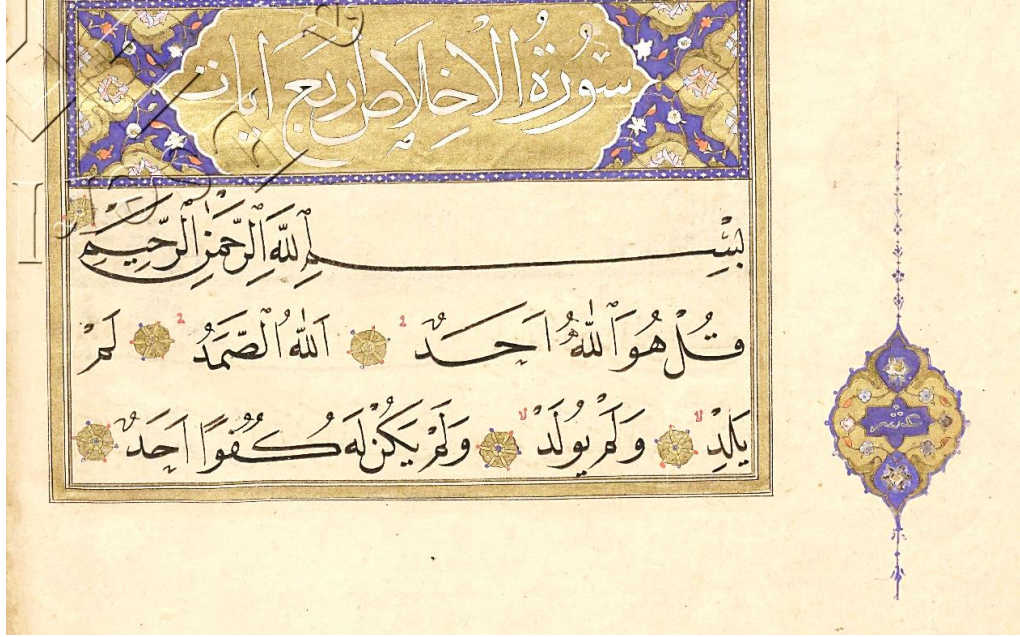 سُورَةُ الْاِخْلَاصِ اَرْبَعُ ايَاتٍ
بِسْمِ اللّٰهِ الرَّحْمٰنِ الرَّحِيمِ
قُلْ هُوَ اللّٰهُ اَحَدٌ اَللّٰهُ الصَّمَدُ لَمْ
يَلِدْ وَلَمْ يُولَدْ وَلَمْ يَكُنْ لَهُ كُفُوًا اَحَدٌ
عشر